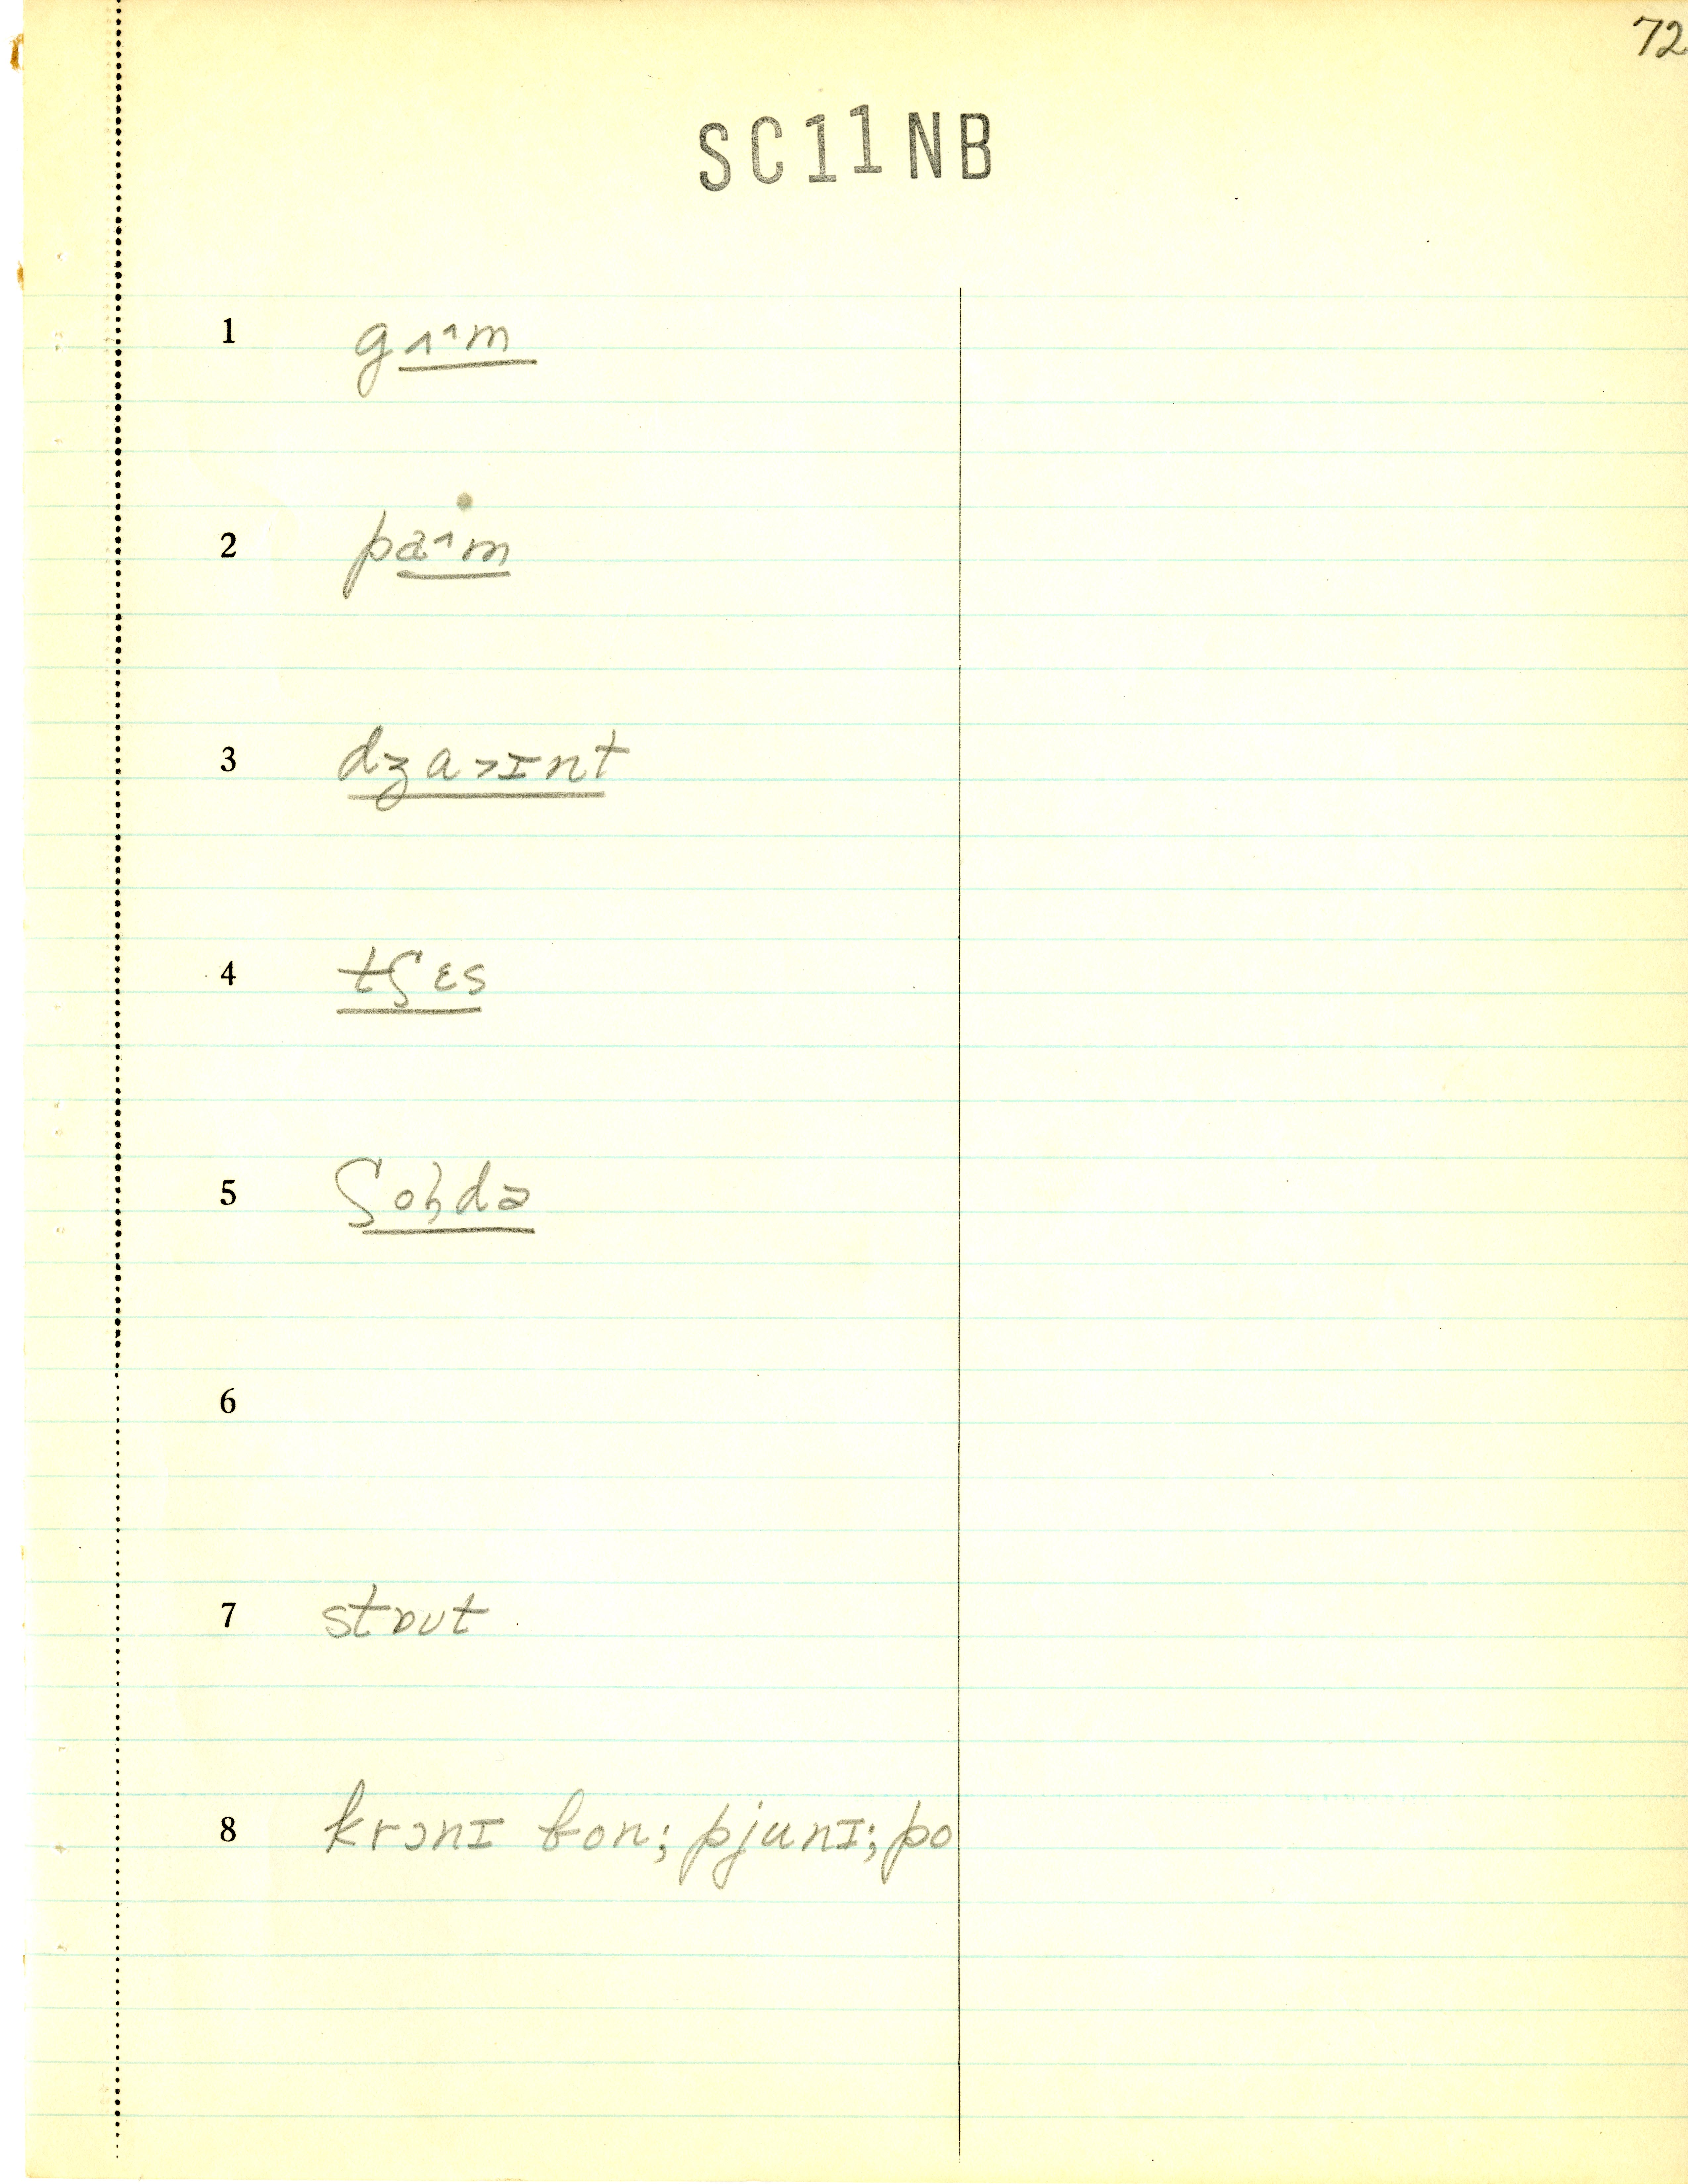 72
SC11NB
1 gʌˑˆm
2 paˑˆm
3 dʒa>ɪnt
4 tʃɛs
5 ʃoldə
6
7 staʊt
8 krɔnɪ bon; pjunɪ; po